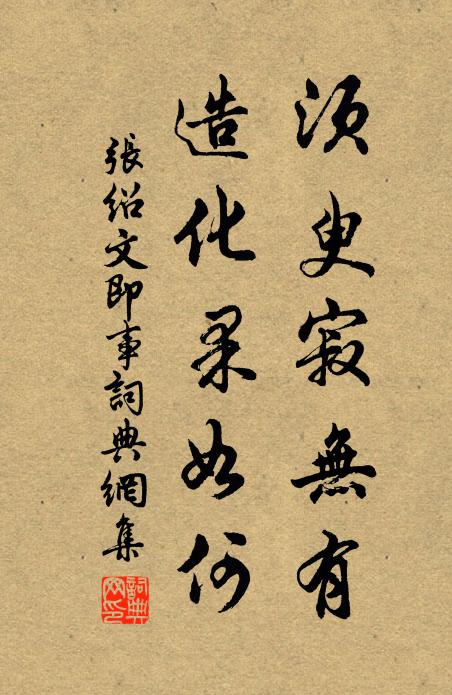 須臾寂無有
造化果如何
張紹文即事詞典網集
詞典網印